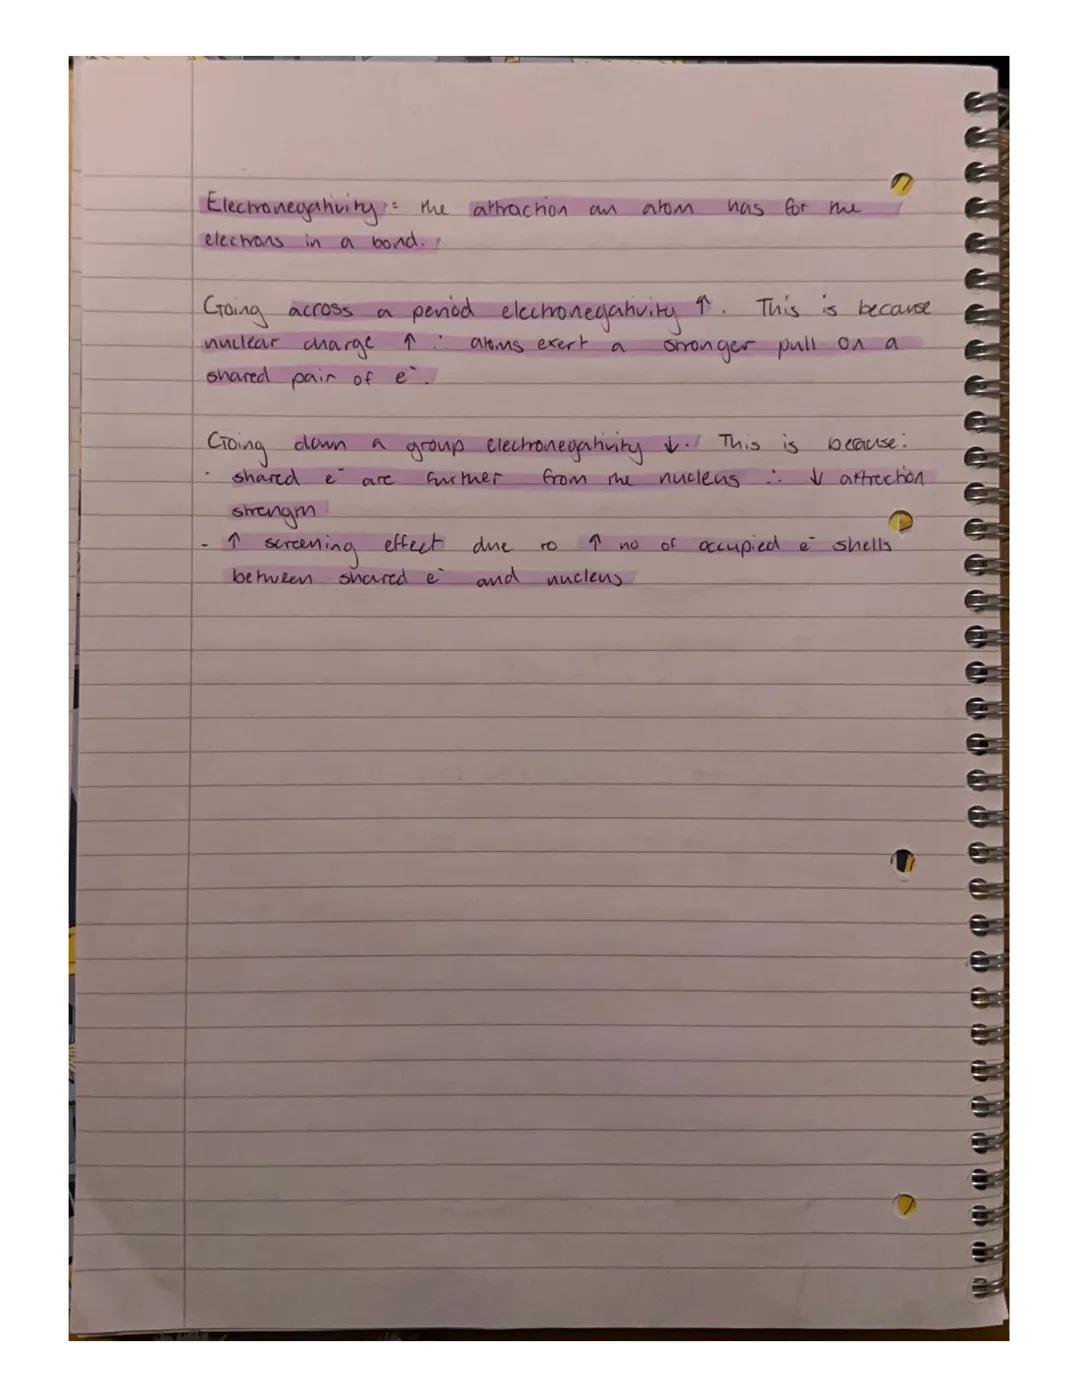 Electronegativity = the attraction an atom has for the
electrons in a bond.
Going across a period electronegativity ↑. This is because
nuclear charge ↑ ∴ atoms exert a stronger pull on a
shared pair of e⁻.
Going down a group electronegativity ↓. This is because:
· shared e⁻ are further from the nucleus ∴ ↓ attraction
strength
- ↑ screening effect due to ↑ no of occupied e⁻ shells
between shared e⁻ and nucleus